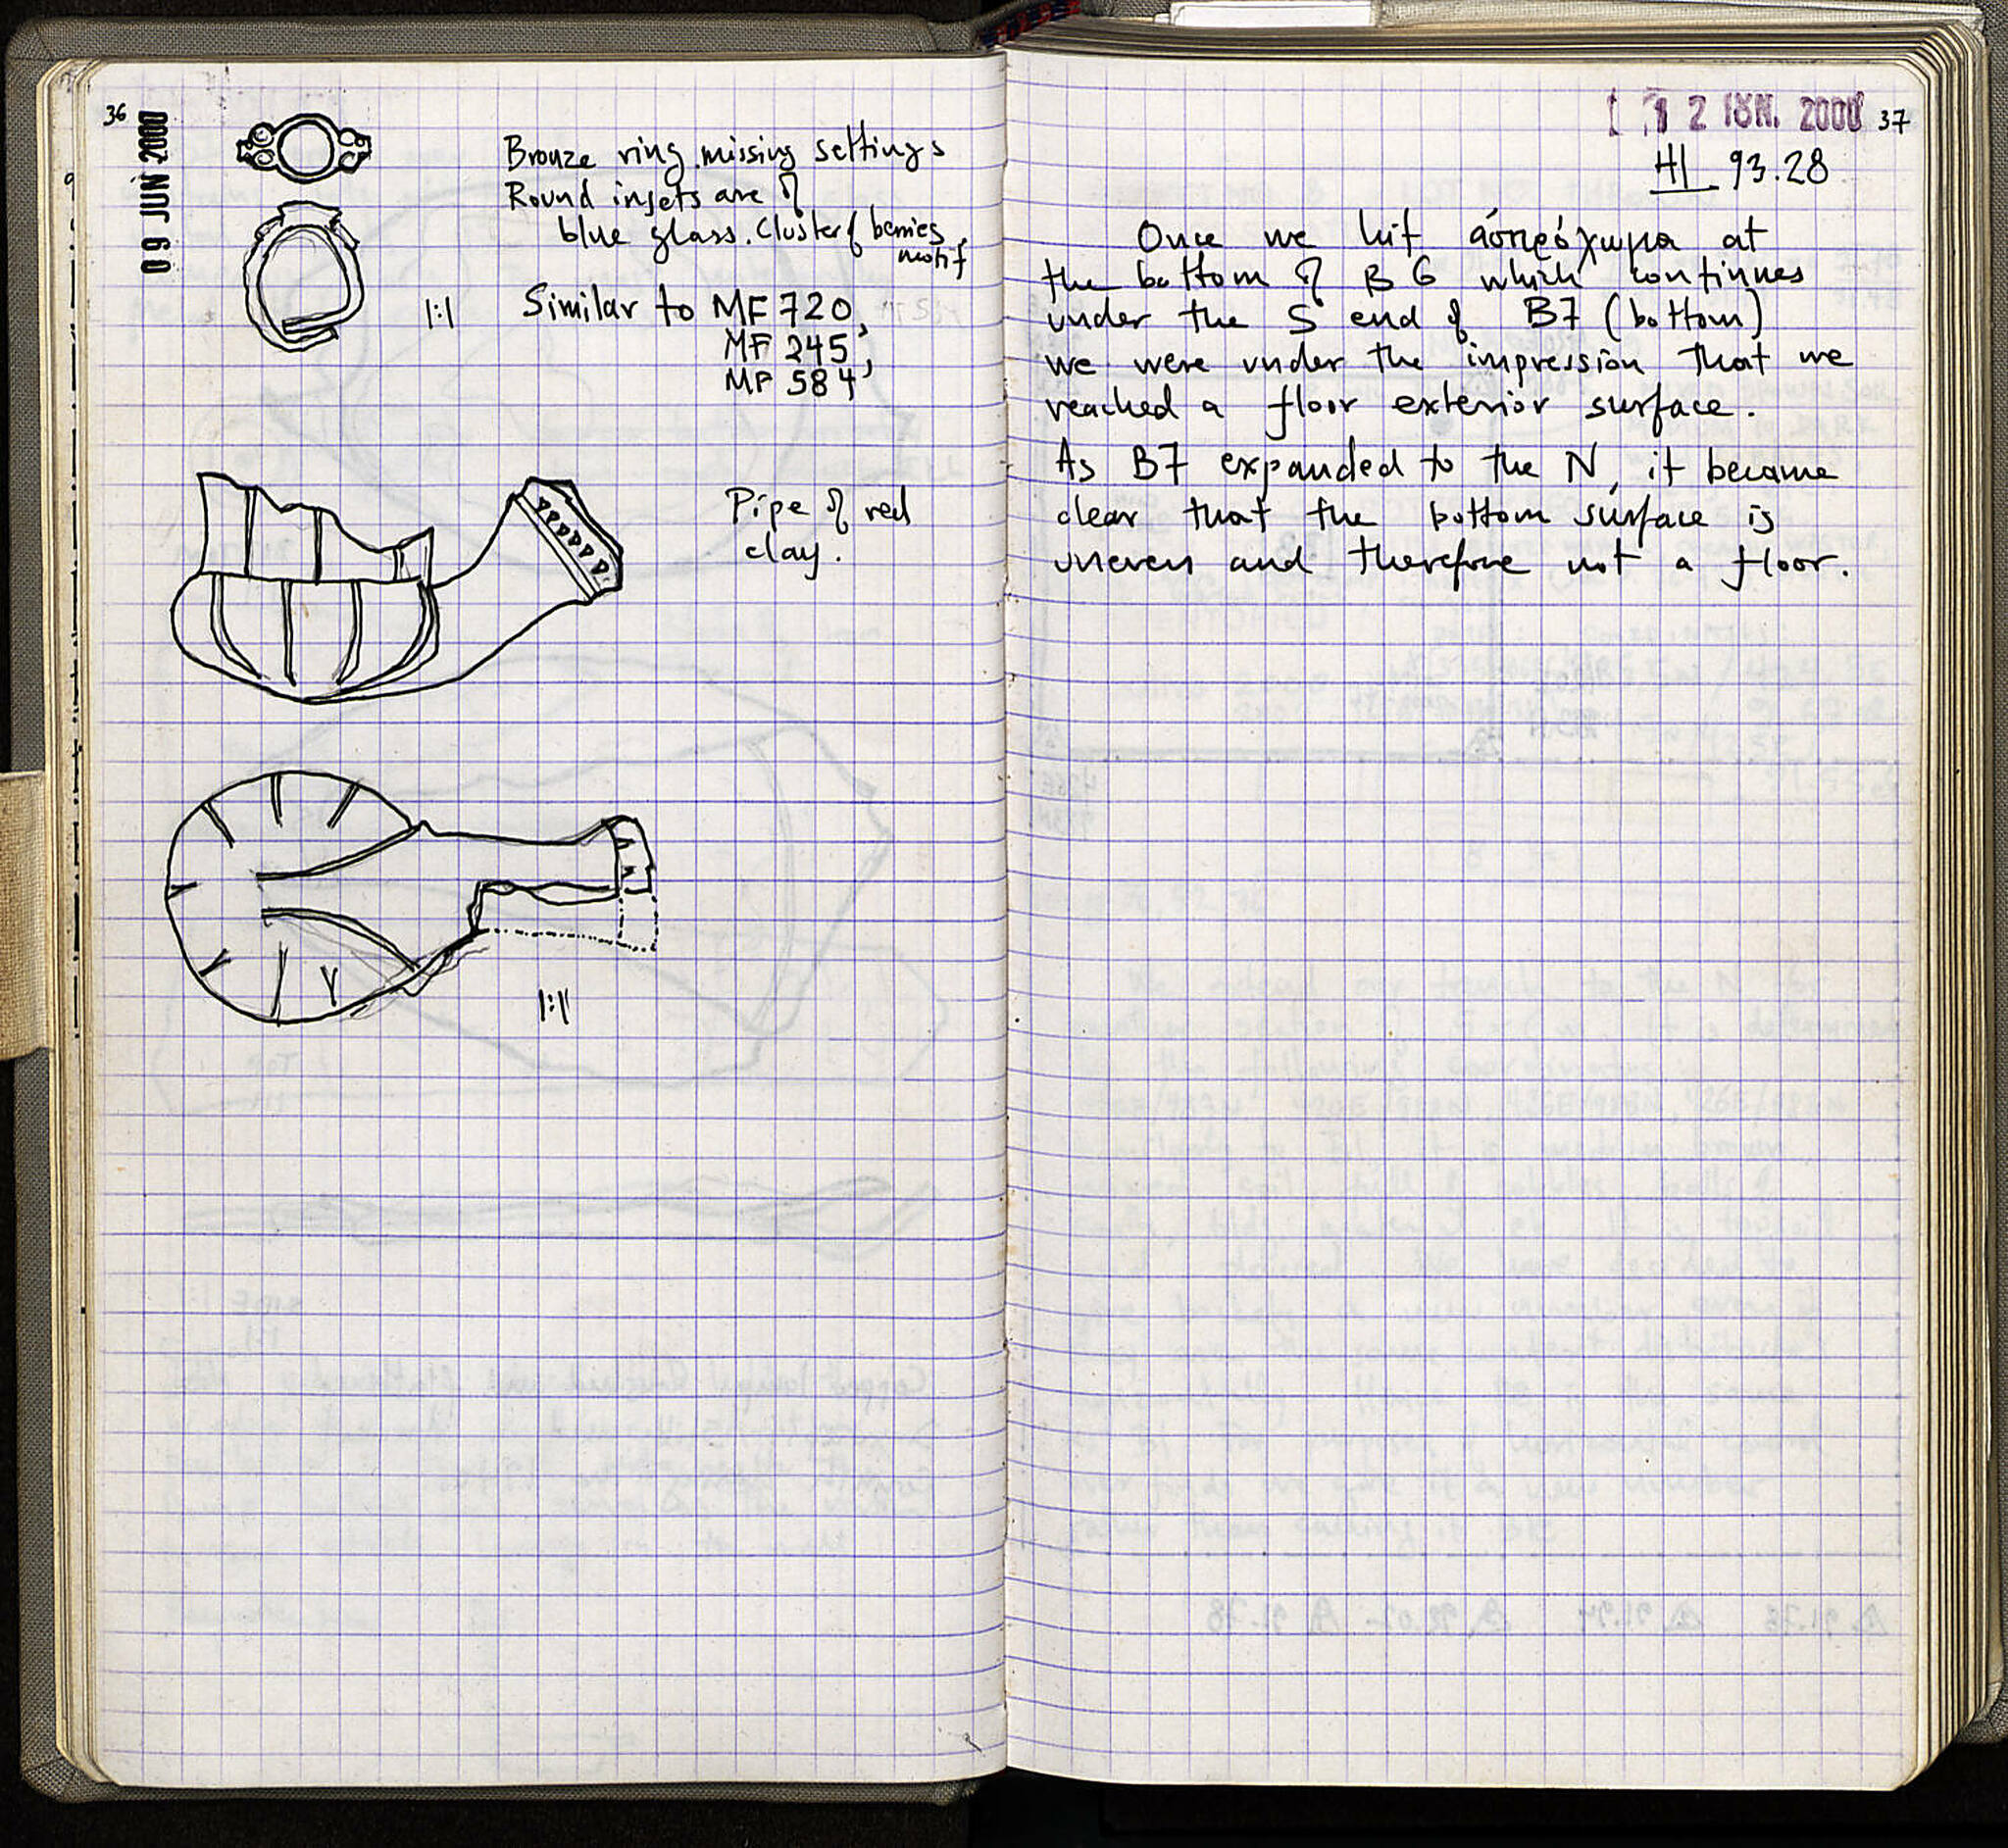 36
09 JUN 2000
Bronze ring missing settings
Round insets are of
blue glass. Cluster of berries
motif
1:1
Similar to MF 720,
MF 245,
MF 584,
Pipe of red
clay.
1:1
12 ΙΟΥΝ. 2000 37
HI 93.28
Once we hit άσπρόχωμα at
the bottom of B6 which continues
under the S end of B7 (bottom)
we were under the impression that we
reached a floor exterior surface.
As B7 expanded to the N, it became
clear that the bottom surface is
uneven and therefore not a floor.